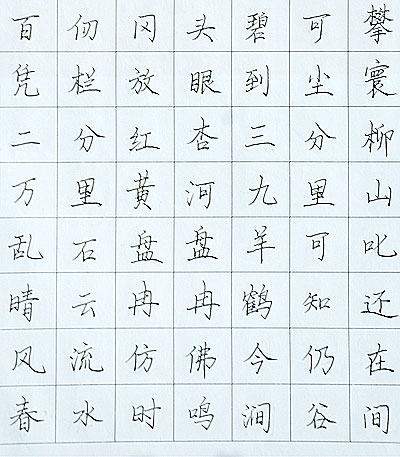 百仞冈头碧可攀
凭栏放眼到尘寰
二分红杏三分柳
万里黄河九里山
乱石盘盘羊可叱
晴云冉冉鹤知还
风流仿佛今仍在
春水时鸣涧谷间